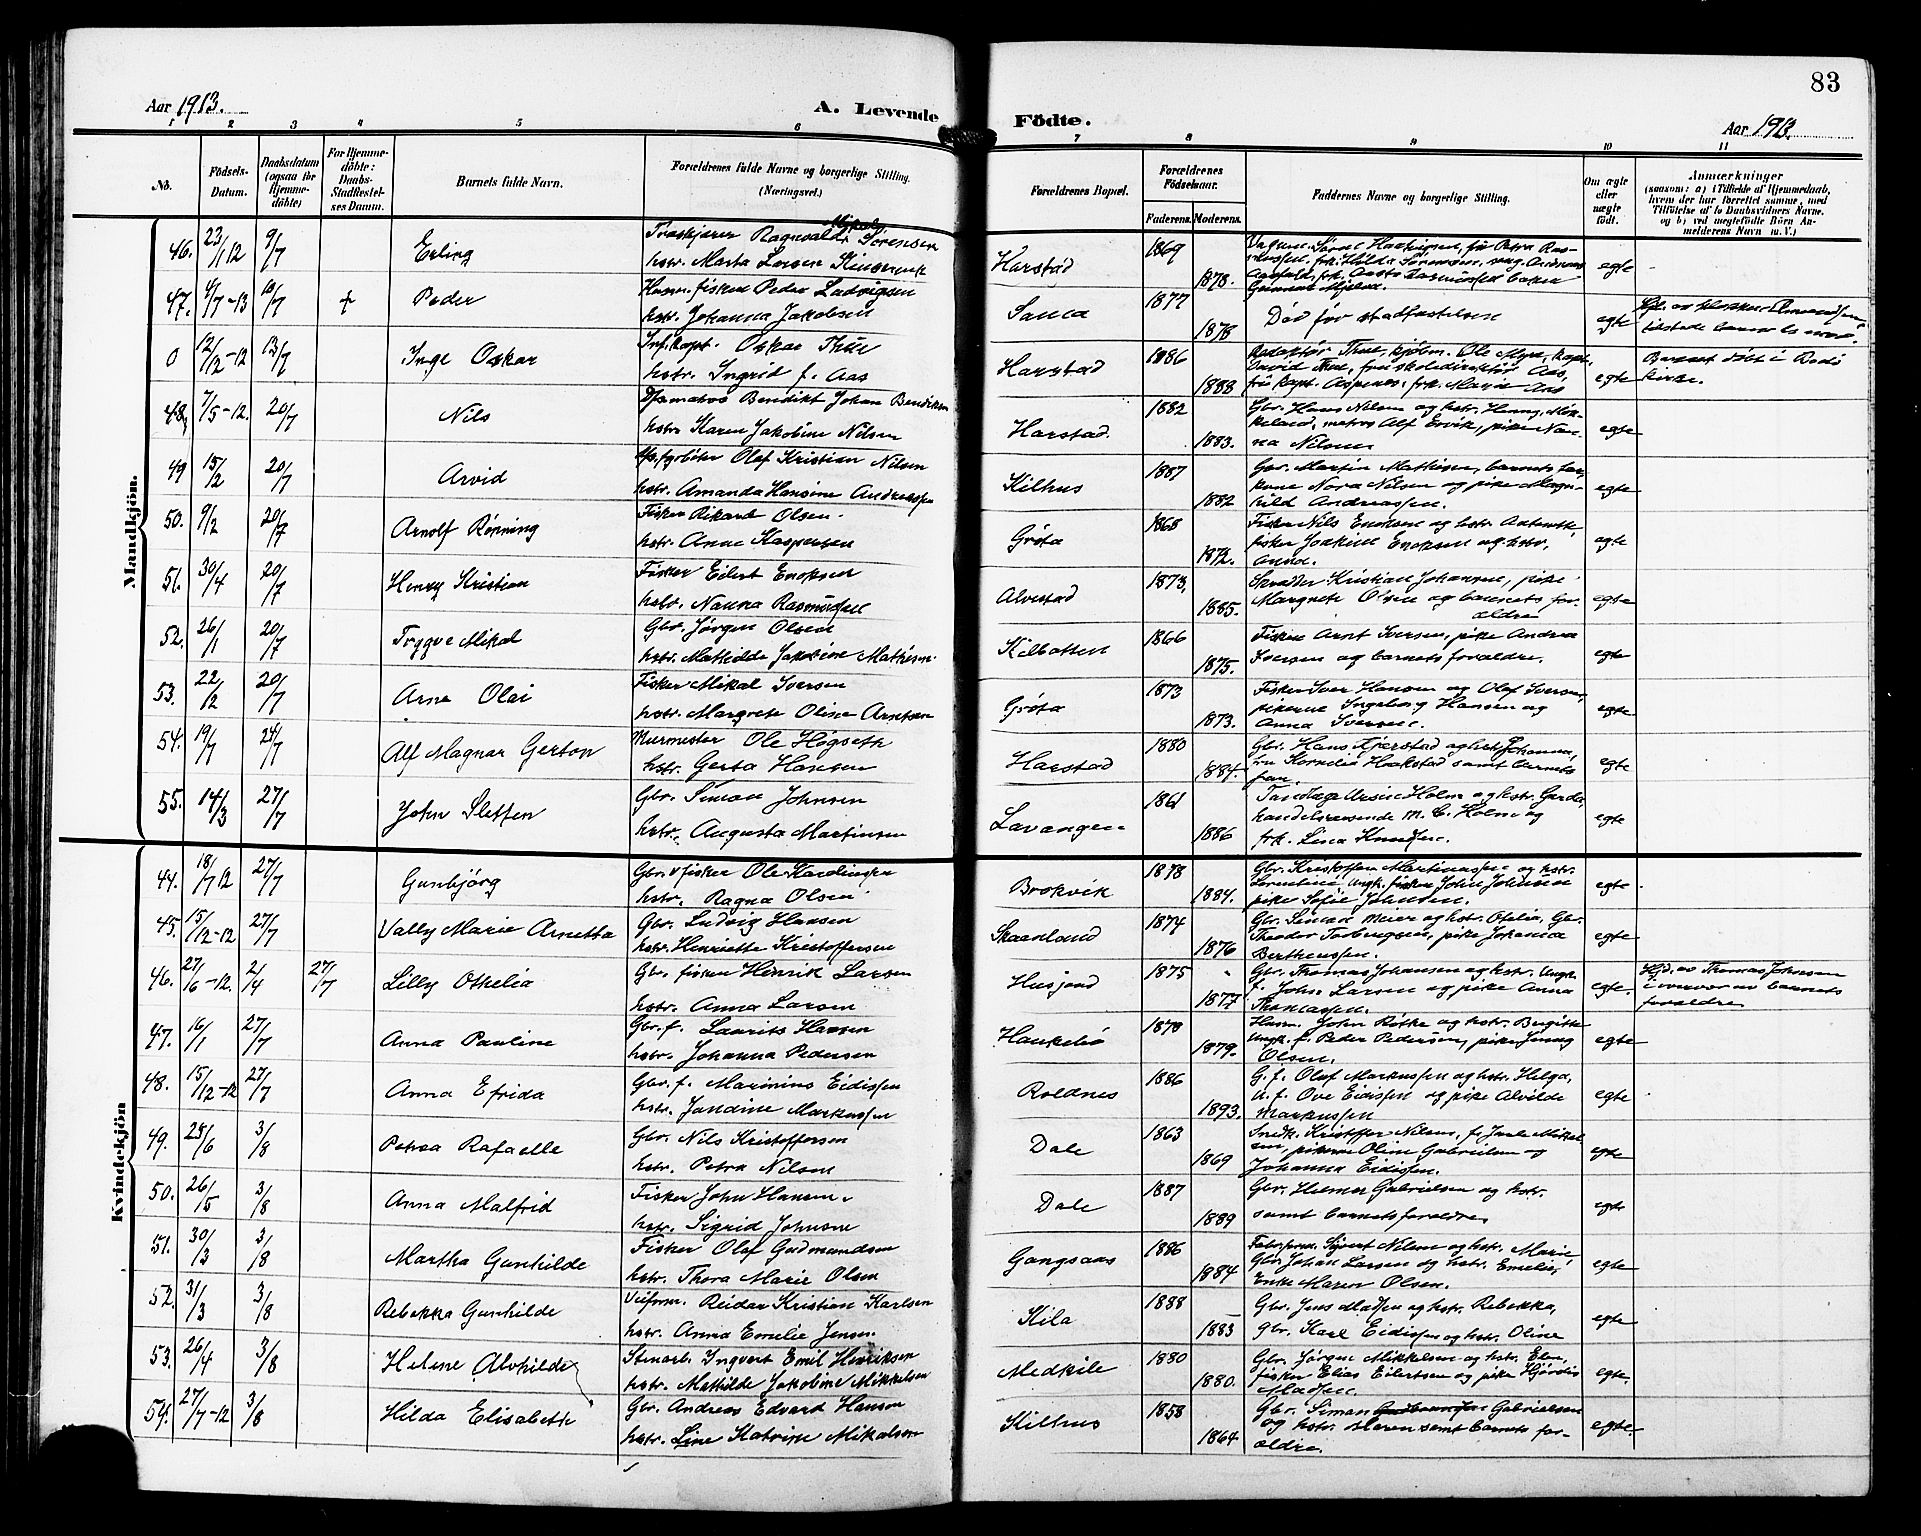 Aar 1913.
A. Levende
Födte.
83
Aar 1913.
1 2 3 4 5 6 7 8 9 10 11
No.
Födsels-Datum.
Daabsdatum (ogsaa for Hjemme-döbte)
For Hjemme-döbte: Daabs-Stadfæstel-ses Datum.
Barnets fulde Navn.
Forældrenes fulde Navne og borgerlige Stilling. (Næringsvei.)
Forældrenes Bopæl.
Forældrenes Födselsaar.
Faderens. Moderens.
Faddernes Navne og borgerlige Stilling.
Om ægte eller uægte födt.
Anmærkninger
(saasom: a) i Tilfælde af Hjemmedaab, hvem der har forrettet samme, med Tilföielse af to Daabsvidners Navne, og b) ved uægtefödte Börn An-melderens Navn u. V.)
Mandkjön.
46. 23/1 12 9/7 Erling Ragnvald Sørensen Harstad 1869 egte
hstr. Marta Larsen 1878.
47. 4/7-13 10/7 + Peder fisker Peder Ludvigsen Sama 1877 Død før stadfæstelsen egte
hstr. Johanna Jakobsen 1878
0 12/2-12 13/7 Inge Oskar Inf.kapt. Oskar Thue Harstad 1886 Redaktør Thue, kjøbm. Ole Myre, kapt. egte Barnet døbt i Bodø
hstr. Ingrid f. Aas 1888 David Thue, fru skoledirektør Aas, kirke.
fru kapt. Aspenes, frk. Marie Aas
48. 7/5-12. 20/7 Nils matros Benedikt Johan Bendiksen Harstad. 1882 Gbr. Hans Nilsen og hstr. Henny, egte
hstr. Karen Jakobine Nilsen 1883. matros Alf Ervik, pike Nan-
na Nilsen
49 15/2 20/7 Arvid Olaf Kristian Nilsen Kilhus 1887 Gbr. Martin Mathisen, barnets far, egte
hstr. Amanda Hansine Andreassen 1882 kone Nora Nilsen og pike Magn-
hild Andreassen.
50. 9/2 20/7 Arnolf Rønning Fisker Rikard Olsen. Grøta 1868 Fisker Nils Enoksen og hstr. egte
hstr. Anne Kaspersen 1872. fisker Joakim Enoksen og hstr.
Anna.
51. 30/4 20/7 Henry Kristian Fisker Eilert Enoksen Alvestad 1873, Skrædder Kristian Johansen, pike egte
hstr. Nanna Rasmussen 1885. Margrete Olsen og barnets for-
ældre
52. 26/1 20/7 Tryggve Mikal Gbr. Jørgen Olsen Kilbotten 1866 Fisker Arnt Iversen, pike Andrea egte
hstr. Mathilde Jakobine Mathisen. 1875. Iversen og barnets forældre.
53. 22/12 20/7 Arne Olai Fisker Mikal Iversen Grøta 1873 Fisker Iver Hansen og Olaf Iversen, egte
hstr. Margrete Oline Arntsen 1873. pikerne Ingeborg Hansen og
Anna Iversen.
54. 19/7 24/7 Alf Magnar Gerton Murmester Ole Høgseth Harstad 1880 Gbr. Hans Kjerstad og hstr. Johanna, egte
hstr. Gerta Hansen 1884. fru Kornelie Haakstad samt barnets
far.
55. 14/3 27/7 John Sletten Gbr. Simon Johnsen Lavangen 1861 Tandlæge Ursin Holm og hstr. Gerda, egte
hstr. Augusta Martinsen 1886 handelsreisende M. C. Holm og
frk. Lina Knudsen.
Kvindekjön
44. 18/7 12 27/7 Gunbjörg Gbr. & fisker Ole Brokvik 1878 Gbr. Kristoffer Martinussen og hstr. egte
hstr. Ragna Olsen 1894. Lorentine, ungk. fisker John Johnsen
pike Sofie Johnsen.
45. 15/12-12 27/7 Vally Marie Arnetta Gbr. Ludvig Hansen Skaanland 1874 Gbr. Simon Meier og hstr. Ofelia, Gbr. egte
hstr. Henriette Kristoffersen 1876 Theodor Torbergsen, pike Johanna
Berthensen.
46. 27/6-12. 2/4 27/7 Lilly Othelia Gbr. fisker Henrik Larsen Husjord 1875 Gbr. Thomas Johansen og hstr. Ungk. egte. Hjd. av Thomas Johansen
hstr. Anna Larsen 1877 f. John Larsen og pike Anna i overvær av barnets
Thomassen. forældre
47. 16/1 27/7 Anna Pauline Gbr. f. Laurits Hansen Haukebø 1879 Husm. John Røtke og hstr. Birgitte egte
hstr. Johanna Pedersen 1879. Ungk. f. Peder Pedersen, pike Jenny
Olsen.
48. 15/12-12 27/7 Anna Efrida Gbr. f. Marinius Eidissen Roldnes 1886 G. f. Olaf Markussen og hstr. Helga, egte
hstr. Jandine Markussen 1893. u. f. Ove Eidissen og pike Alvilde
Markussen
49. 25/6 3/8 Petra Rafaelle Gbr. Nils Kristoffersen Dale 1863 Snedk. Kristoffer Nilsen, f. Jarle Mikal- egte
hstr. Petra Nilsen 1869 sen, pikerne Oline Gabrielsen og
Johanna Eidissen.
50. 26/5 3/8 Anna Malfrid Fisker John Hansen. Dale 1887 Gbr. Hilmer Gabrielsen og hstr. egte
hstr. Sigrid Johnsen 1889 samt barnets forældre
51. 30/3 3/8 Martha Gunhilde Fisker Olaf Gudmundsen Gangsaas 1886 Sivert Nilsen og hstr. Marie, egte
hstr. Thora Marie Olsen 1884 Gbr. Johan Larsen og hstr. Emelie,
Enke Maren Olsen.
52. 31/3 3/8 Rebekka Gunhilde Reidar Kristian Karlsen Kila 1888 Gbr. Jens Madsen og hstr. Rebekka, egte
hstr. Anna Emelie Jensen 1883 gbr. Karl Eidissen og hstr. Oline
53. 26/4 3/8 Helene Alvhilde Stenarb. Ingvert Emil Henriksen Medkile 1880 Gbr. Jørgen Mikkelsen og hstr. Elen, egte.
hstr. Mathilde Jakobine Mikkelsen 1880. fisker Elias Eilertsen og pike Hjørdis
Madsen.
54. 27/7-12 3/8 Hilda Elisabeth Gbr. Andreas Edvard Hanson Kilhus 1858 Gbr. Simon Gabrielsen egte
hstr. Line Katrine Mikalsen 1864 og hstr. Maren samt barnets for-
ældre.